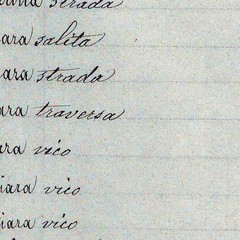 strada
iara salita
iara strada
ara traversa
ara vico
iara vico
iara vico